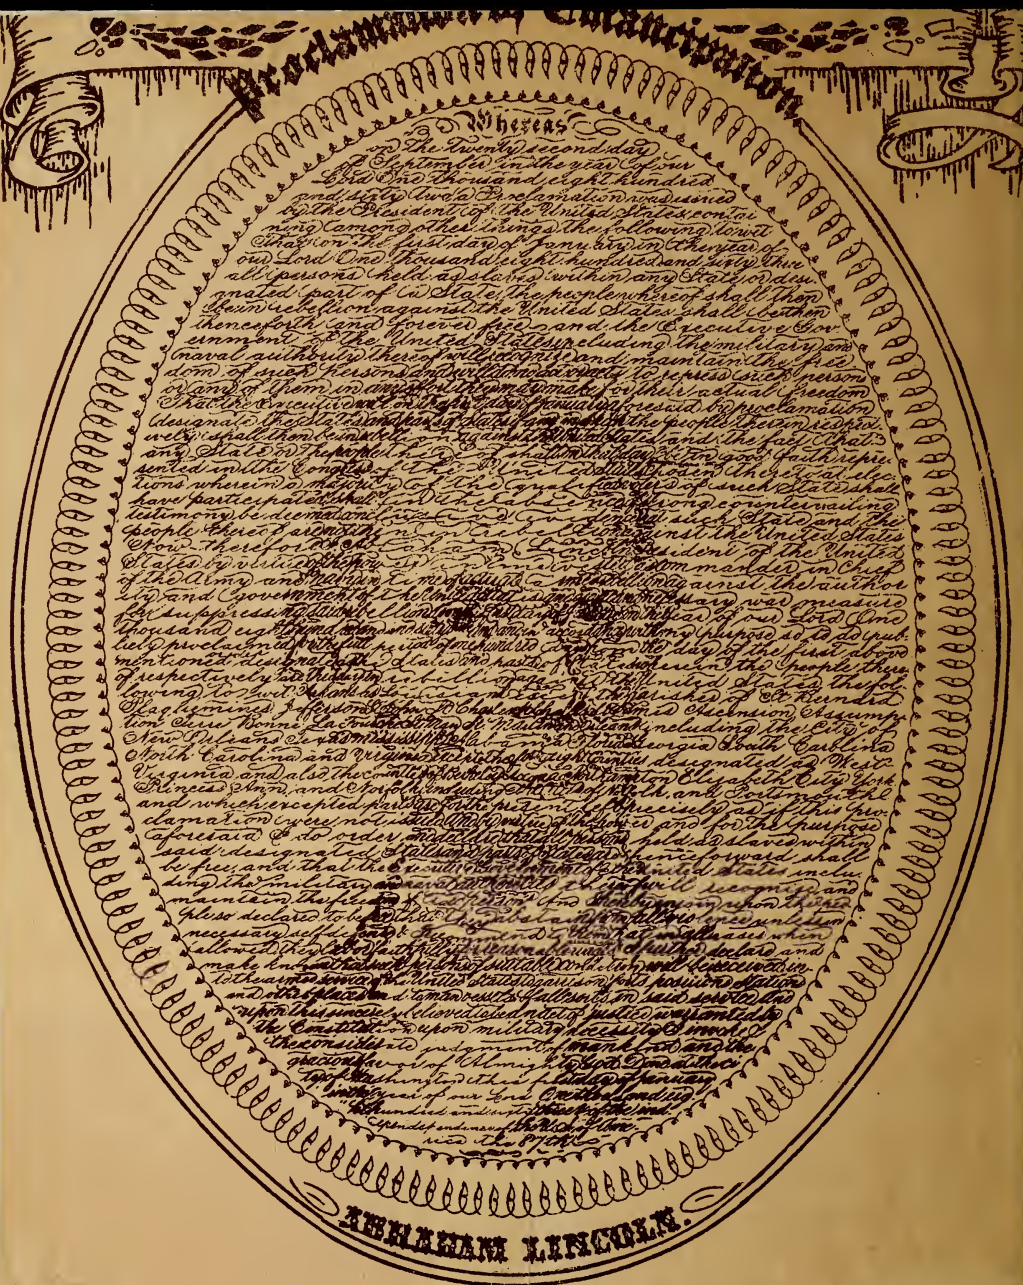 Proclamation of Emancipation
Whereas
on the twenty second day
of September in the year of our
Lord One thousand eight hundred
and sixty two a Proclamation was issued
by the President of the United States contai
ning among other things the following to wit
that on the first day of January in the year of
our Lord One thousand eight hundred and sixty three
all persons held as slaves within any State or desi
gnated part of a State the people whereof shall then
be in rebellion against the United States shall be then
thenceforth and forever free and the Executive Gov
ernment of the United States including the military and
naval authority thereof will recognise and maintain the free
dom of such persons and will do no act or acts to repress such persons
or any of them in any effort they may make for their actual freedom
That the Executive will on the first day of January aforesaid by proclamation
designate the States and parts of States if any in which the people therein respec
ively shall then be in rebellion against the United States and the fact that
any State or the people thereof shall on that day be in good faith repre
sented in the Congress of the United States elec
tions wherein a majority of the qualified of such State shall
have participated shall in the absence of strong countervailing
testimony be deemed such State and the
people thereof are not against the United States
Now therefore President of the United
States by virtue of the Commander in Chief
of the Army and Navy in time of actual armed rebellion against the author
ity and government of the United States necessary war measure
for suppressing said rebellion year of our Lord One
thousand eight my purpose so to do pub
licly proclaimed period of one hundred day of the first above
mentioned designate the States and parts of States wherein the people there
of respectively are this day in rebellion against the United States the fol
lowing to wit Arkansas Louisiana the parishes of St
Plaquemines Jefferson St John St Charles St James Ascension Assump
tion Terre Bonne La Fourche St Mary St Martin and Orleans including the City of
New Orleans Mississippi Alabama Florida Georgia South Carolina
North Carolina and Virginia except the forty eight Counties designated as West
Virginia and also the counties of Berkeley Northampton Elizabeth City York
Princess Ann and Norfolk including
and which excepted parts are for the present left precisely as if this pro
clamation were not issued And by virtue of the power and for the purpose
aforesaid I do order and declare that all persons held as slaves within
said designated States and parts of States henceforward shall
be free and that the Executive Government of the United States inclu
ding the military and naval authorities thereof will recognise and
maintain the freedom of said persons And I hereby enjoin upon the peo
ple so declared to be free to abstain from all violence unless in
necessary self defence that in all cases when
allowed they labor faithfully for reasonable wages And I further declare and
make known that such persons of suitable condition will be received in
to the armed service of the United States to garrison forts position stations
and other places and to man vessels of all sorts in said service And
upon this sincerely believed to be an act of justice warranted by
the Constitution upon military necessity I invoke
the considerate judgement of mankind and the
gracious favor of Almighty God Done at the Ci
ty of Washington this first day of January
in the year of our Lord One thousand eig
ht hundred and sixty three and of the ind
ependendence of the U S of Ame
rica the 87th
ABRAHAM LINCOLN.